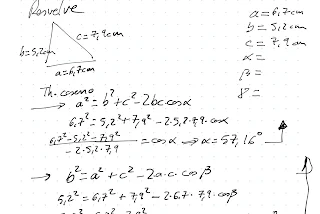 Resuelve
a = 6,7cm
b = 5,2cm
c = 7,9cm
α =
β =
γ =
c = 7,9cm
b = 5,2cm
a = 6,7cm
Th. coseno
→ a² = b² + c² - 2bc cosα
6,7² = 5,2² + 7,9² - 2·5,2·7,9·cosα
6,7² - 5,2² - 7,9² / -2·5,2·7,9 = cosα ⇒ α = 57,16°
→ b² = a² + c² - 2a·c·cosβ
5,2² = 6,7² + 7,9² - 2·6,7·7,9·cosβ